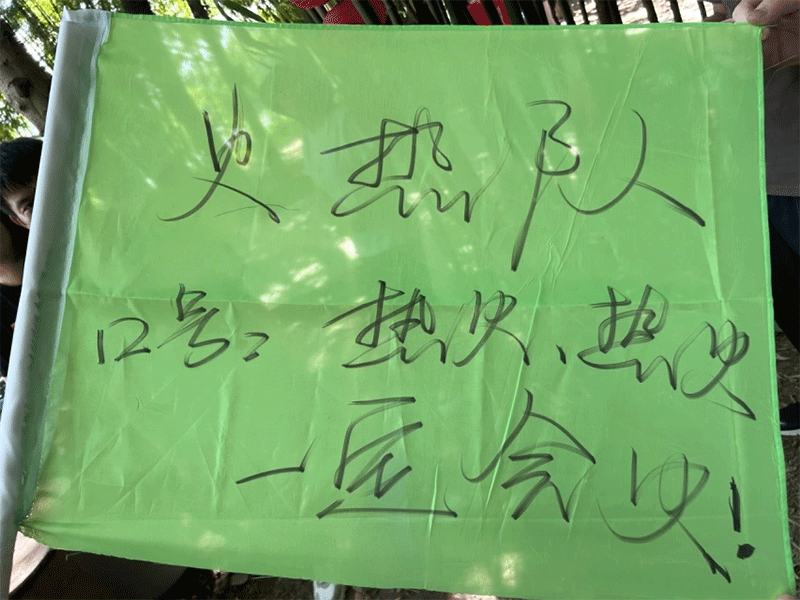 火热队
口号:热火、热火
一定会火!